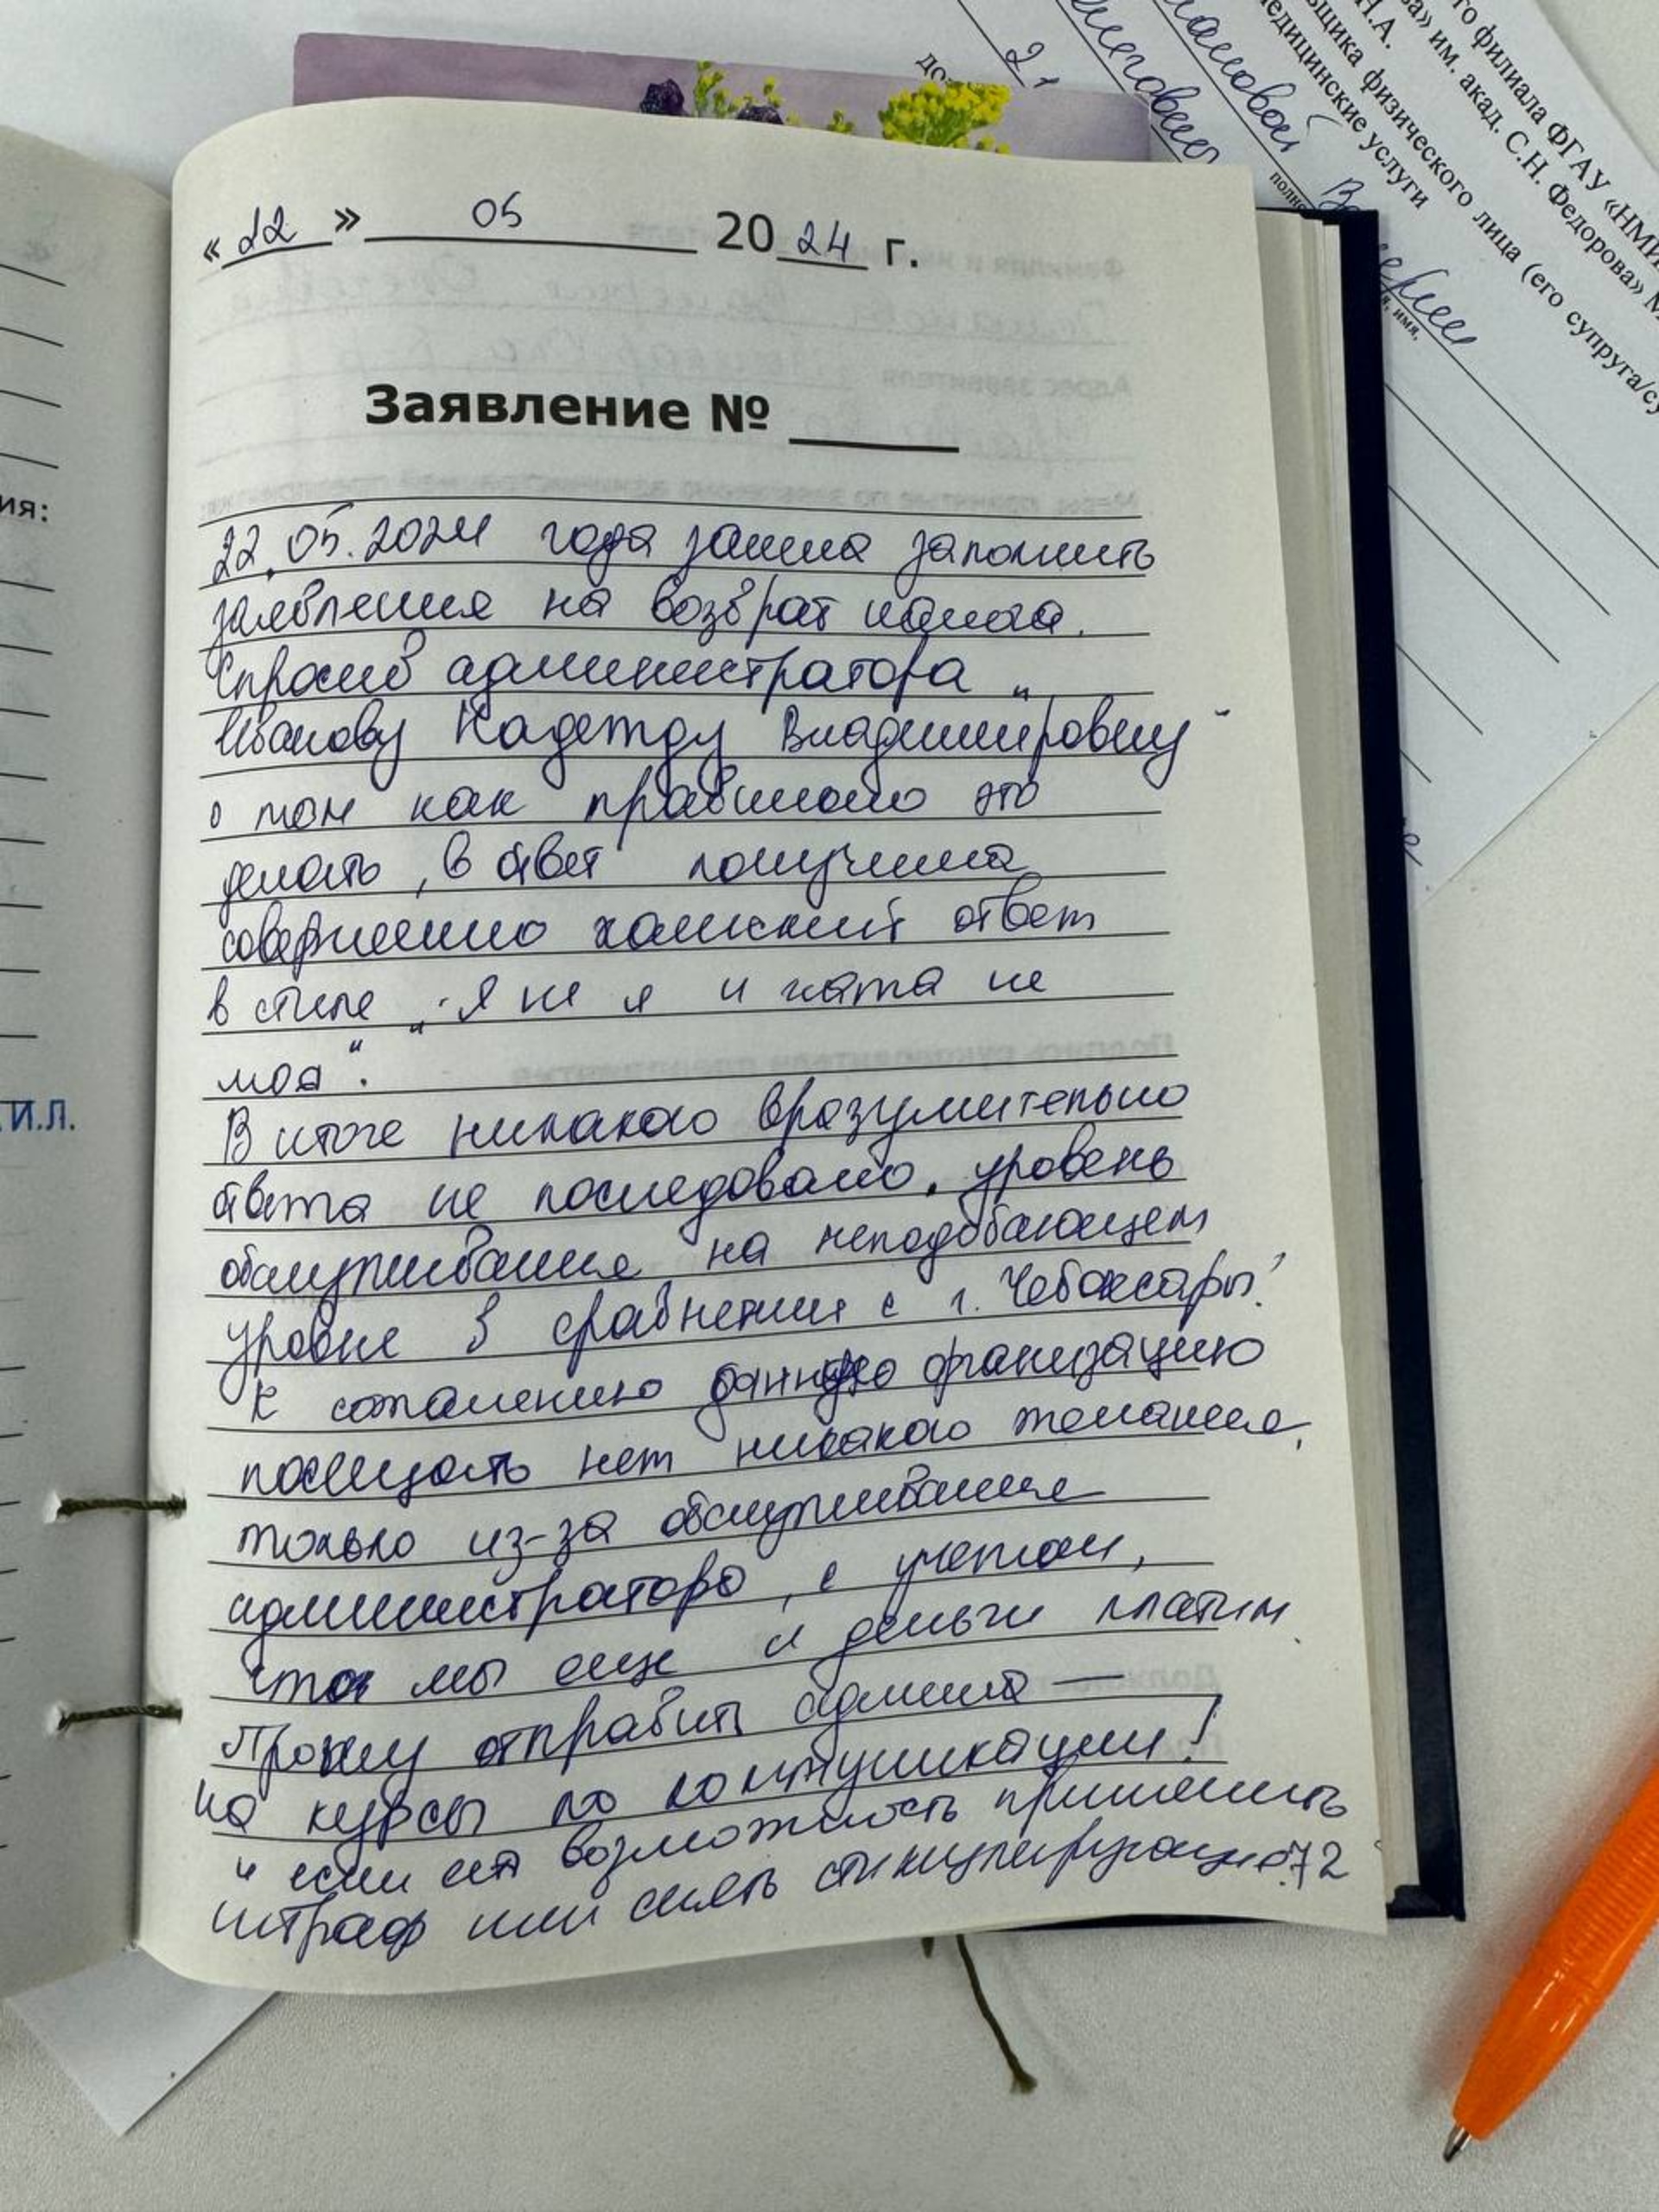 « 22 » 05 20 24 г.
Заявление №
22.05.2024 года зашла заполнить
заявления на возврат налога.
Спросив администратора "
Иванову Надежду Владимировну"
о том как правильно это
делать, в ответ получила
совершенно хамский ответ
в стиле „Я не я и хата не
моя".
В итоге никакого вразумительно
ответа не последовало, уровень
обслуживания на неподобающем
уровне в сравнении с г. Чебоксары!
К сожалению данную организацию
посещать нет никакого желания,
только из-за обслуживания
администратора, с учетом,
что мы еще и деньги платим.
Прошу отправить админа —
на курсы по коммуникации!
и если есть возможность применить
штраф или снять стимулирующие.
72
ия:
И.Л.
го филиала ФГАУ «НМИ
ва» им. акад. С.Н. Федорова» М
Н.А.
щика физического лица (его супруга/су
едицинские услуги
ановой
полно
я, имя,
21